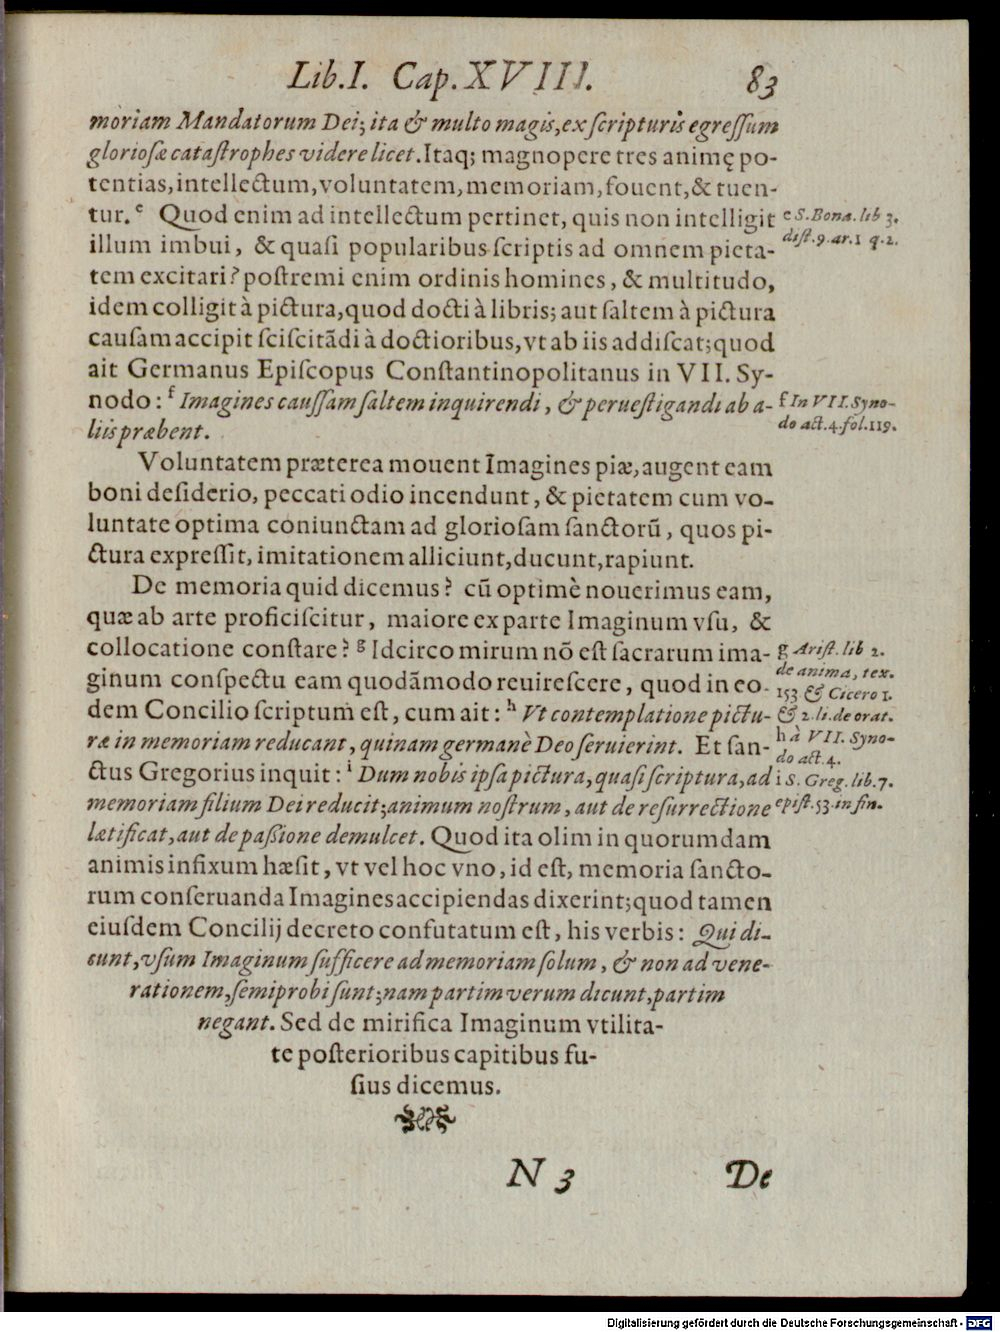 Lib. I. Cap. XVIII. 83
moriam Mandatorum Dei; ita & multo magis, ex ſcripturis egreſſum
glorioſæ cataſtrophes videre licet. Itaq; magnopere tres animę po-
tentias, intellectum, voluntatem, memoriam, fouent, & tuen-
tur. e Quod enim ad intellectum pertinet, quis non intelligit
illum imbui, & quaſi popularibus ſcriptis ad omnem pieta-
tem excitari? poſtremi enim ordinis homines, & multitudo,
idem colligit à pictura, quod docti à libris; aut ſaltem à pictura
cauſam accipit ſciſcitãdi à doctioribus, vt ab iis addiſcat; quod
ait Germanus Epiſcopus Conſtantinopolitanus in VII. Sy-
nodo: f Imagines cauſſam ſaltem inquirendi, & perueſtigandi ab a-
liis præbent.
Voluntatem præterea mouent Imagines piæ, augent eam
boni deſiderio, peccati odio incendunt, & pietatem cum vo-
luntate optima coniunctam ad glorioſam ſanctorũ, quos pi-
ctura expreſſit, imitationem alliciunt, ducunt, rapiunt.
De memoria quid dicemus? cũ optimè nouerimus eam,
quæ ab arte proficiſcitur, maiore ex parte Imaginum vſu, &
collocatione conſtare? g Idcirco mirum nõ eſt ſacrarum ima-
ginum conſpectu eam quodãmodo reuireſcere, quod in eo-
dem Concilio ſcriptum eſt, cum ait: h Vt contemplatione pictu-
ræ in memoriam reducant, quinam germanè Deo ſeruierint. Et ſan-
ctus Gregorius inquit: i Dum nobis ipſa pictura, quaſi ſcriptura, ad
memoriam filium Dei reducit; animum noſtrum, aut de reſurrectione
lætificat, aut de paßione demulcet. Quod ita olim in quorumdam
animis infixum hæſit, vt vel hoc vno, id eſt, memoria ſancto-
rum conſeruanda Imagines accipiendas dixerint; quod tamen
eiuſdem Concilij decreto confutatum eſt, his verbis: Qui di-
cunt, vſum Imaginum ſufficere ad memoriam ſolum, & non ad vene-
rationem, ſemiprobi ſunt; nam partim verum dicunt, partim
negant. Sed de mirifica Imaginum vtilita-
te poſterioribus capitibus fu-
ſius dicemus.
N 3 De
e S. Bona. lib 3.
diſt. 9. ar. 1 q. 2.
f In VII. Syno-
do act. 4. fol. 119.
g Ariſt. lib 2.
de anima, tex.
153 & Cicero 1.
& 2. li. de orat.
h à VII. Syno-
do act. 4.
i S. Greg. lib. 7.
epiſt. 53. in fin.
Digitalisierung gefördert durch die Deutsche Forschungsgemeinschaft - DFG